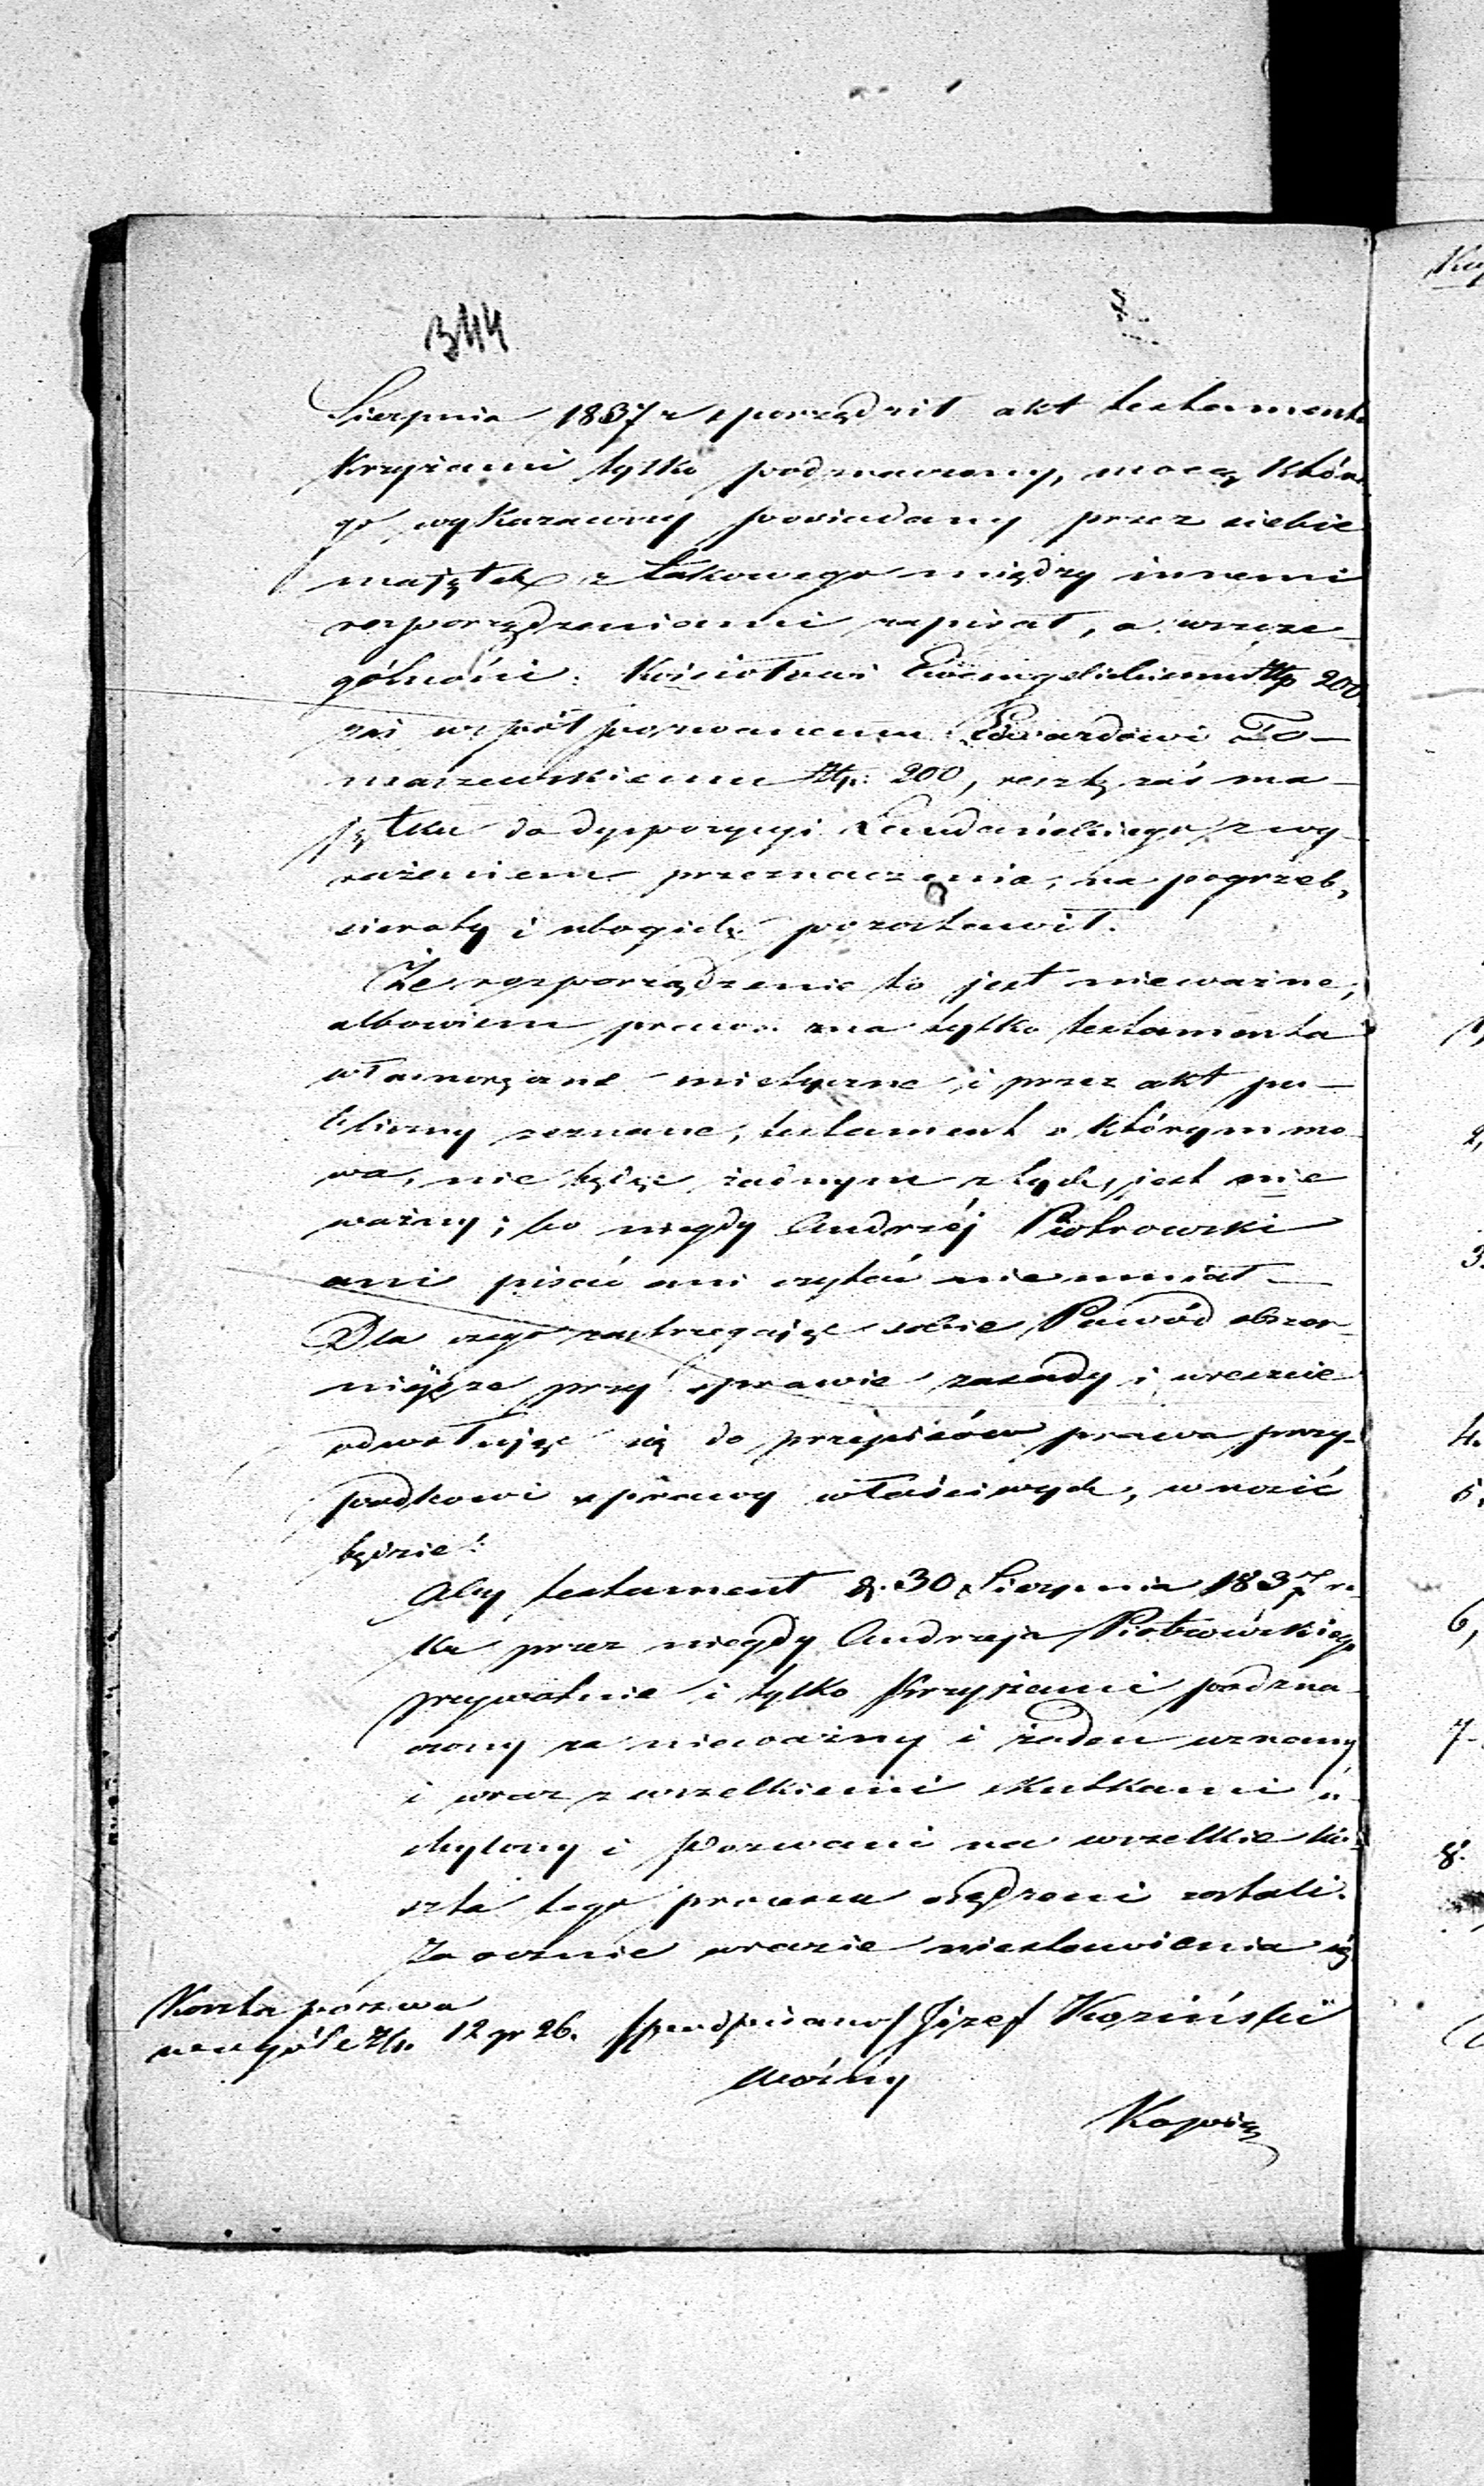 344
Sierpnia 1837 r sporządził akt testamentu
Krzyżami tylko podznaczony, mocą które
go wykazawszy posiadany przez siebie
majątek z takowego między innemi
rozporządzeniami zapisał, a wszcze
gólności: Kościołowi Ewangelickiemu Złp 200
zaś współpozwanemu Edwardowi To—
maszewskiemu Złp. 200, resztę zaś ma—
jątku do dyspozycyi Laudańskiego z wy—
rażeniem przeznaczenia, na pogrzeb,
sieroty i ubogich pozostawił.
Że rozporządzenie to jest nieważne,
albowiem prawo zna tylko testamenta
własnoręczne mistyczne i przez akt pu—
bliczny zeznane, testament o którym mo
wa, nie będąc żadnym z tych, jest nie
ważny; bo niegdy Andrzéj Piotrowski
ani pisać ani czytać nie umiał—
Dla czego zastrzegając sobie Powód obszer—
niejsze przy sprawie zasady i wreszcie
odwołując się do przepisów prawa przy—
padkowi sprawy właściwych, wnosić
będzie:
Aby testament d. 30 Sierpnia 1837 ro
ku przez niegdy Andrzeja Piotrowskiego
prywatnie i tylko Krzyżami podzna
czony za nieważny i żaden uznany
i wraz z wszelkiemi skutkami u
chylony i Pozwani na wszelkie ko
szta tego procesu osądzeni zostali.
Zaocznie wrazie niestawienia się
Koszta pozwu
w ogóle Złp. 12 gr 26. /podpisano/ Józef Koziński
Woźny
Kopią
Kop
2,
3.
4.
5.
6,
7.
8.